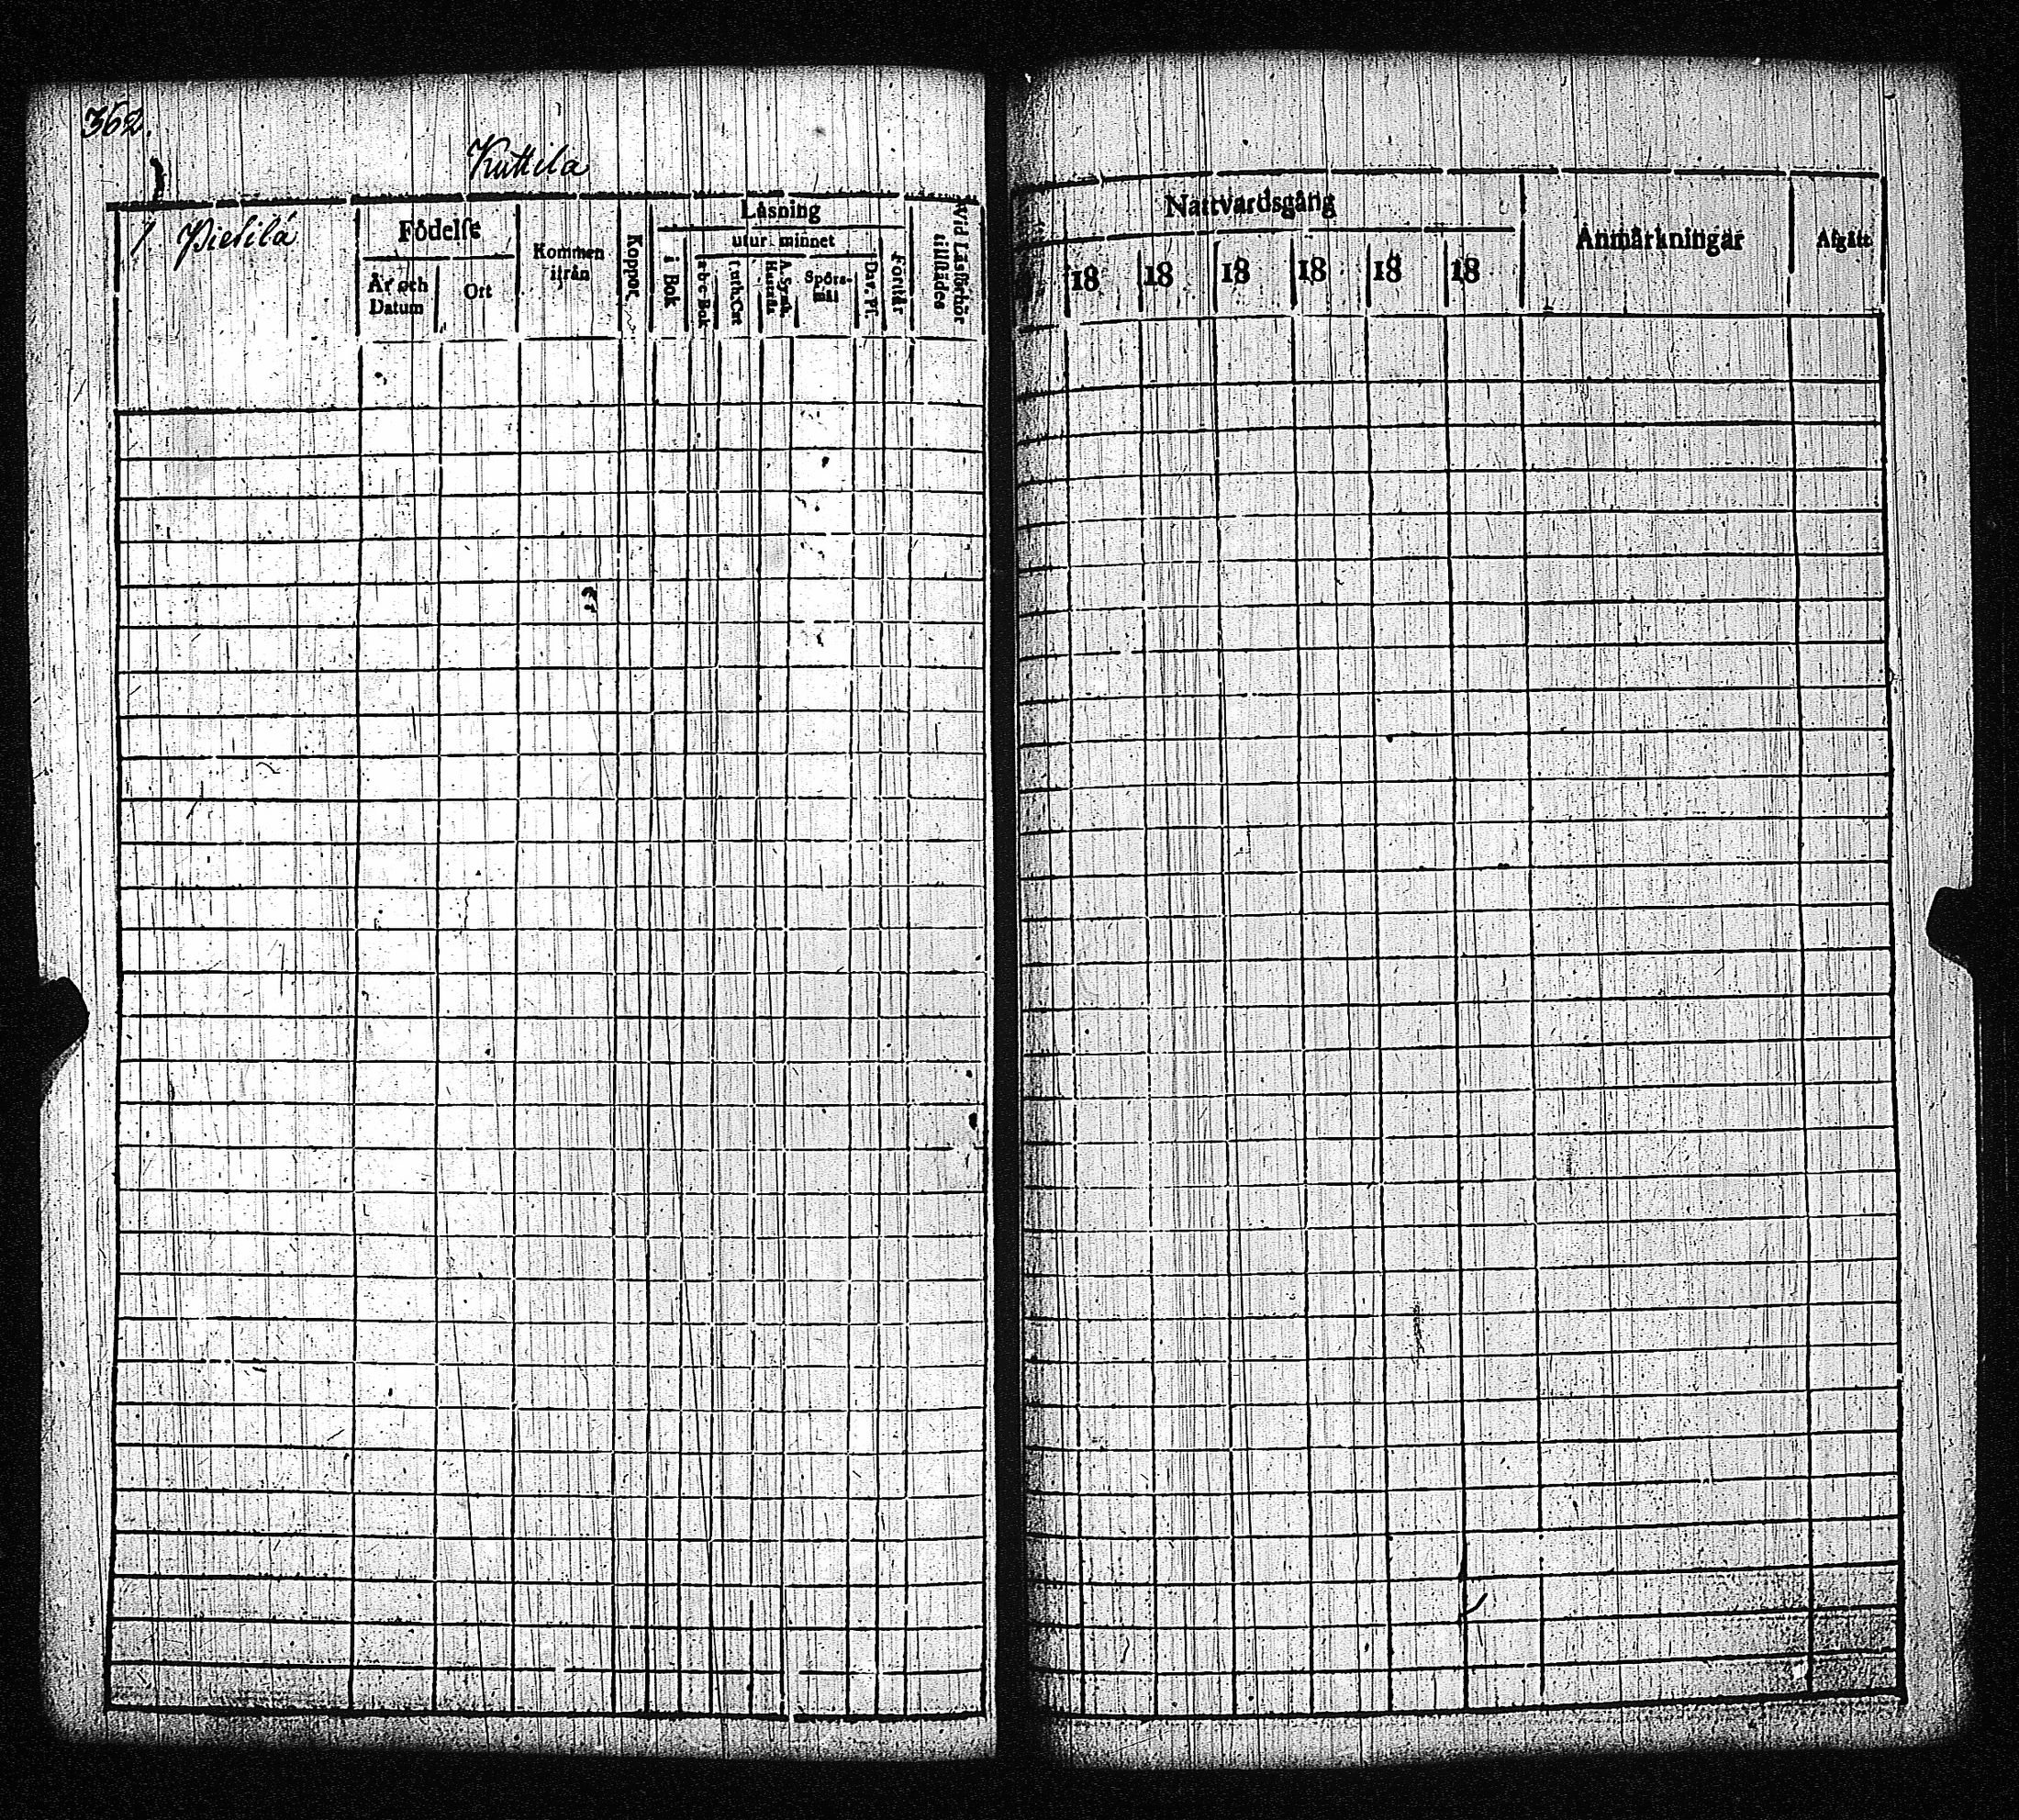 362.
Kuttila
1 Pietilä
Födelse
År och Datum
Ort
Kommen ifrån
Koppor
Läsning
i Bok
utur minnet
a-b-c Bok
Luth. Cat
A. Symb. Hustafla
Spörs-mål
Dav. Ps.
Förstår
Vid Läsförhör tillstädes
Nattvardsgång
18 18 18 18 18 18
Anmärkningar
Afgått